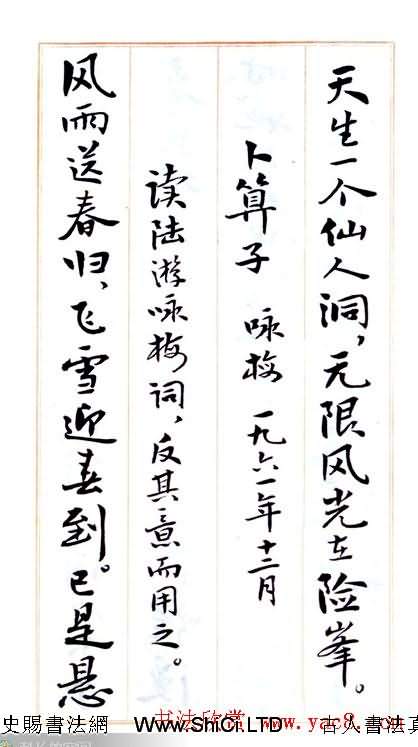 天生一个仙人洞，无限风光在险峯。
卜算子 咏梅 一九六一年十二月
读陆游咏梅词，反其意而用之。
风雨送春归，飞雪迎春到。已是悬
书法欣赏 www.yac8.com
史賜書法網 www.ShiCi.LTD 古人書法真